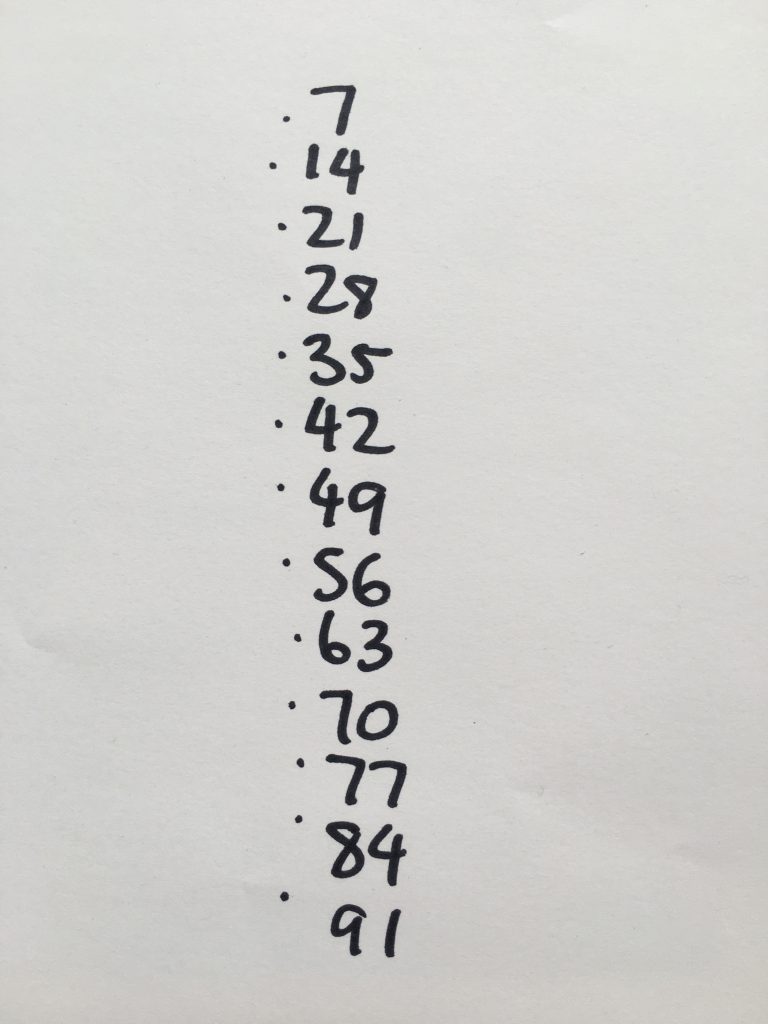 · 7
· 14
· 21
· 28
· 35
· 42
· 49
· 56
· 63
· 70
· 77
· 84
· 91